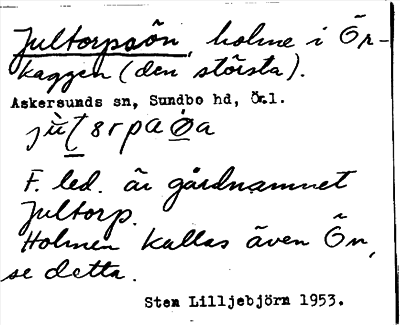 Jultorpsön, holme i Ör-
kaggen (den största).
Askersunds sn, Sundbo hd, Ör.l.
F. led. är gårdnamnet
Jultorp.
Holmen kallas även Ön,
se detta.
Sten Lilljebjörn 1953.